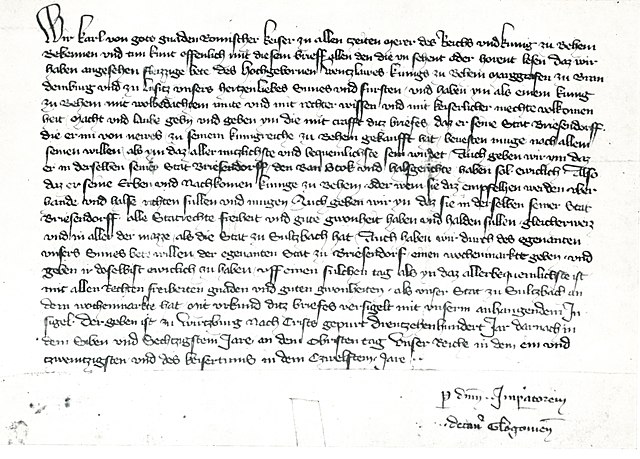 Wir Karl von gots gnaden Romischer keiser zu allen zeiten merer des Reichs und kunig zu Behem
Bekennen und tun kunt offenlich mit diesem brieff allen den die yn sehent oder horent lesen daz wir
haben angesehen flizzige bete des Hochgebornen wenzlawes kunigs zu Behem marggrafen zu Bran
demburg und zu Lusitz unsers hertzenliebes Sunes und fursten und haben ym als einem kunig
zu Behem mit wolbedachtem mute und mit rechter wissen und mit keiserlicher mechte volkomen
heit macht und laube gebn und geben ym die mit crafft ditz briefes daz er seine Stat Briesendorff
die er im von newes zu seinem kunigreiche zu Behem gekaufft hat bevesten muge noch allem
seinen willen als ym daz aller nuczlichste und bequemlichste sein wirdet Auch geben wir ym daz
er in derselben seiner Stat Briesendorff den Ban Stok und halsgerichte haben sol ewiclich Also
daz er seine Erben und Nachkomen kunige zu Behem oder wem sie daz empfelhen werden uber
hande und halse richten sullen und mugen Auch geben wir yn daz sie in derselben seiner Stat
Briesendorff alle Statrechte freiheit und gute gwonheit haben und halden sullen gleicherweiz
und in aller der mazze als die Stat zu Sulczbach hat Auch haben wir durch des egenanten
unsers Sunes bete willen der egenanten Stat zu Briesendorf einen wochenmarkt geben und
geben in doselbist ewiclich zu haben uff einen sulchen tag als yn daz allerbequemlichste ist
mit allen Rechten freiheiten gnaden und guten gwonheiten als unser Stat zu Sulczbach an
dem wochenmarkte hat Mit urkund ditz briefes versigelt mit unserm anhangendem In
sigel Der geben ist zu Wurtzburg Nach Cristes geburt dreutzehenhundert Jar darnach in
dem Siben und Sechtzigistem Jare an dem Obristen tag Unser Reiche in dem ein und
tzwentzigsten und des keisertums in dem Czwelftem Jare
p dnm Imperatorem
decan Glogomen